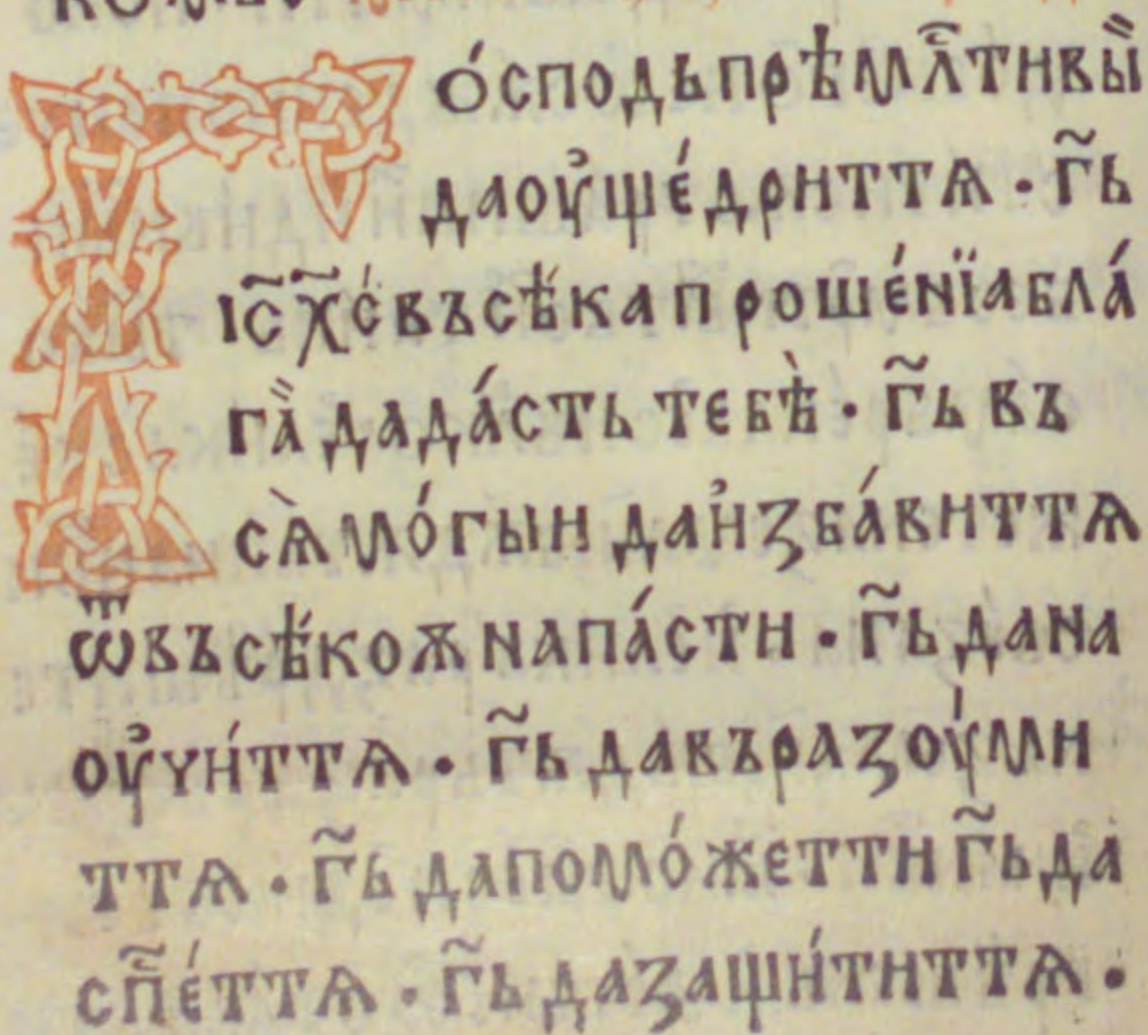 Го́сподь прѣмл҃тивы̏и
да оу҆ще́дрит тѧ · г҃ь
іс҃ х҃с́ въсѣ́ка прошє́нїа бла́
га̏а да да́сть тебѣ̀ · г҃ь въ
сѧ̀ мо́гыи да и҆зба́вит тѧ
ѿ въсѣ́коѫ напа́сти · г҃ь да на
оу҆чи́т тѧ · г҃ь да въразоу́ми
т тѧ · г҃ь да помо́жет ти г҃ь да
сп҃е́т тѧ · г҃ь да защи́тит тѧ ·